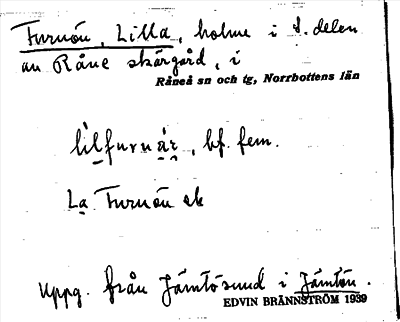 Furuön, Lilla, holme i S. delen
av Råne skärgård, i
Råneå sn och tg, Norrbottens län
lilfuruär, bf. fem.
La Furuön ek
Uppg. från Jämtösund i Jämtön.
EDVIN BRÄNNSTRÖM 1939